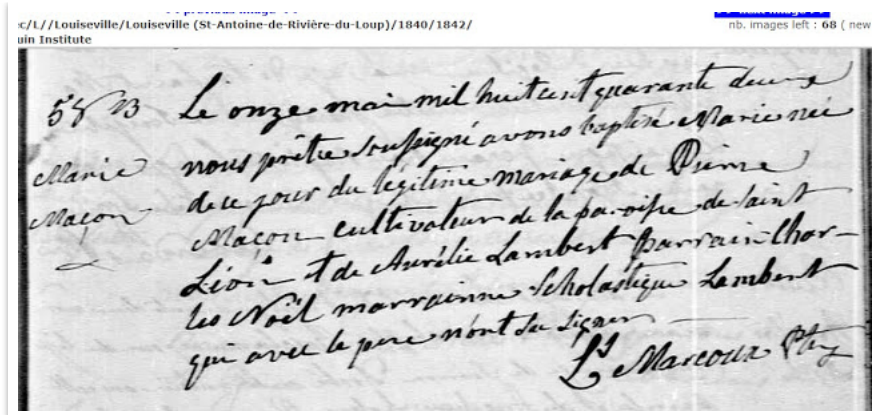 c/L//Louiseville/Louiseville (St-Antoine-de-Rivière-du-Loup)/1840/1842/
nb. images left : 68 ( new
uin Institute
58 B
Marie
Maçon
Le onze mai mil huit cent quarante deux
nous prêtre soussigné avons baptisé Marie née
de ce jour du légitime mariage de Pierre
Maçon cultivateur de la paroisse de Saint
Léon et de Aurélie Lambert Parrain Char-
les Noël marrainne Scholastique Lambert
qui avec le pere n'ont su signer
Ls Marcoux Ptre